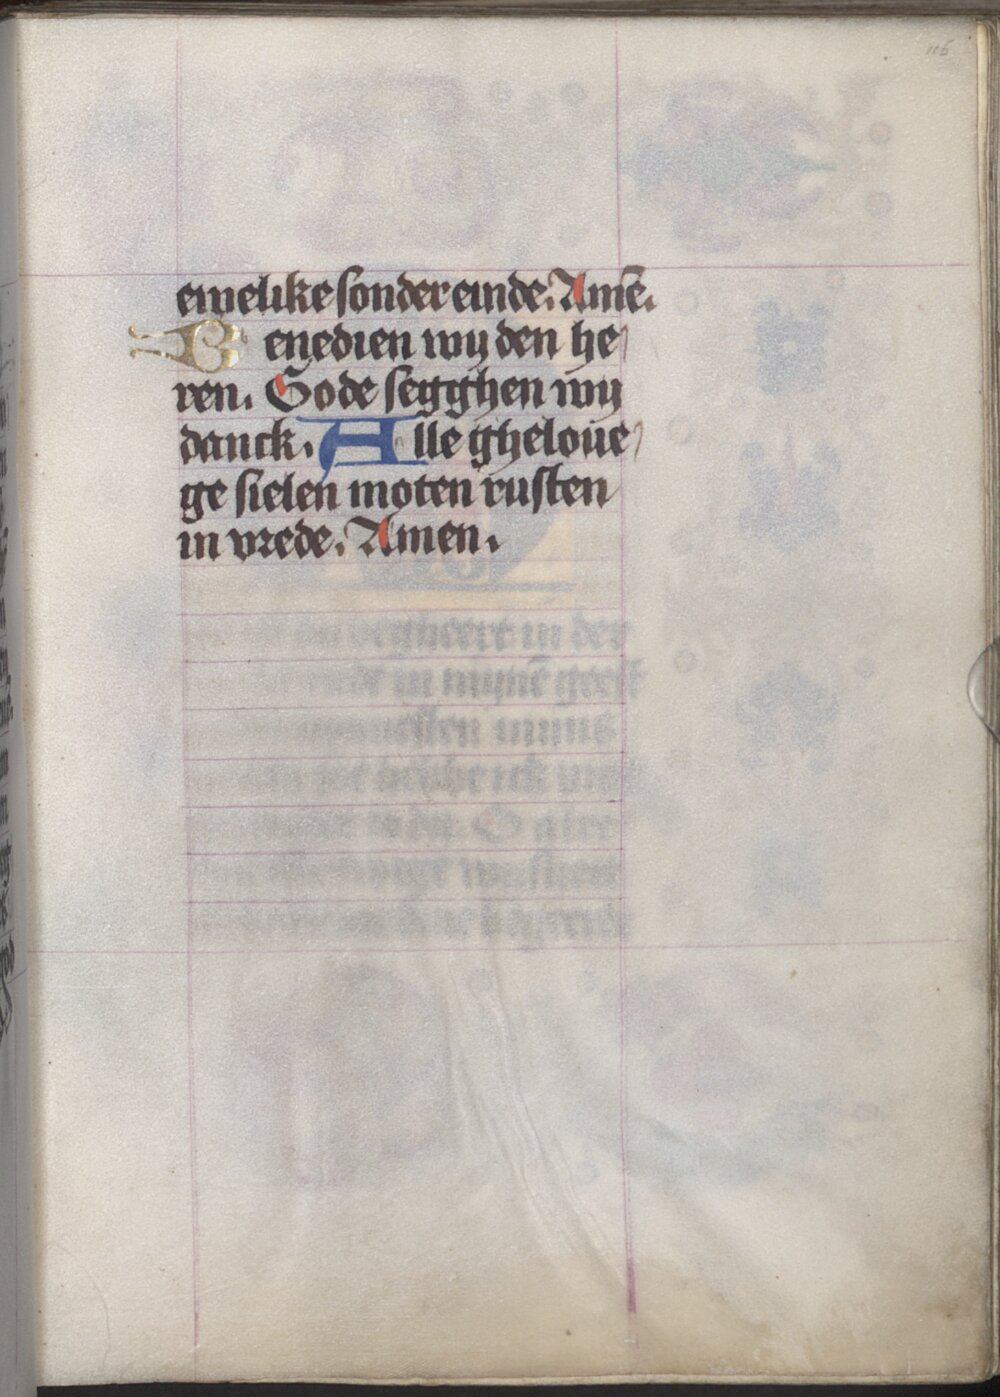 ewelike sonder einde. Amē.
Benedien wy den he
ren. Gode segghen wy
danck. Alle gheloue
ge sielen moten rusten
in vrede. Amen.